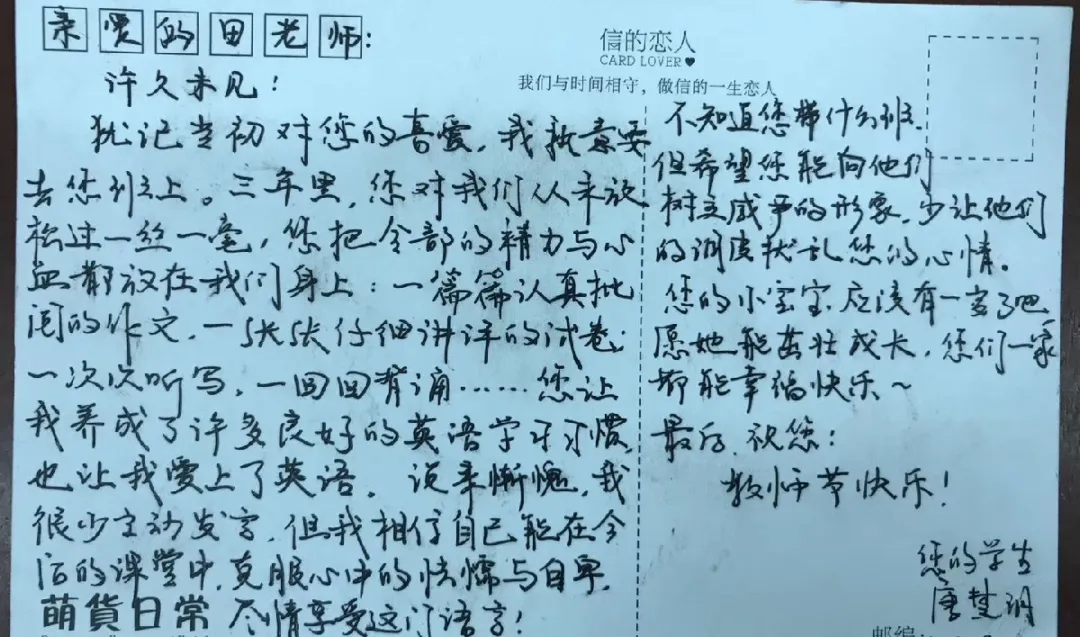 亲爱的田老师：
信的恋人
CARD LOVER
我们与时间相守，做信的一生恋人
许久未见！
犹记当初对您的喜爱，我执意要
去您班上。三年里，您对我们从未放
松过一丝一毫，您把全部的精力与心
血都放在我们身上：一篇篇认真批
阅的作文，一张张仔细讲评的试卷；
一次次听写，一回回背诵……您让
我养成了许多良好的英语学习习惯，
也让我爱上了英语。说来惭愧，我
很少主动发言，但我相信自己能在今
后的课堂中，克服心中的怯懦与自卑，
尽情享受这门语言！
萌貨日常
不知道您带什么班，
但希望您能向他们
树立威严的形象，少让他们
的调皮扰乱您的心情。
您的小宝宝应该有一岁了吧
愿她能茁壮成长，您们一家
都能幸福快乐～
最后，祝您：
教师节快乐！
您的学生
唐楚玥
邮编